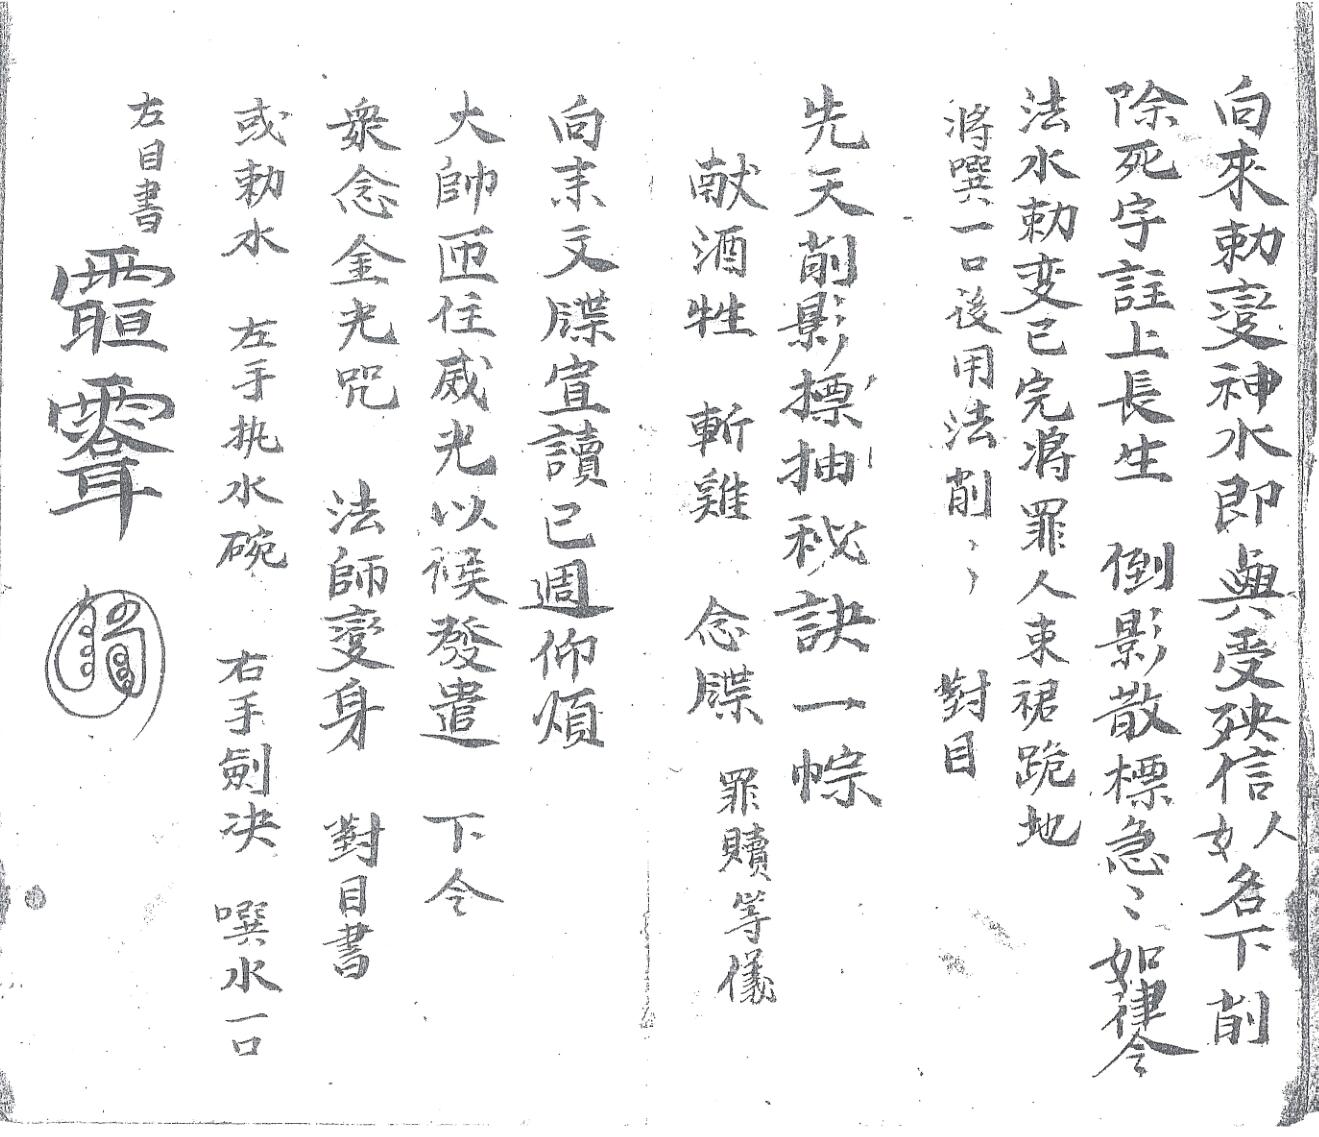 向來勅變神水即與受殃信人女名下削
除死字註上長生 倒影散標急〻如律令
法水勅变已完將罪人束裙跪地
將噀一口後用法削〻 對目
先天削影摽抽秘訣一宗
献酒牲 斬雞 念牒 罪贖等儀
向来文牒宣讀已週仰煩
大帥匝住威光以候發遣 下令
衆念金光咒 法師變身 對目書
或勅水 左手执水碗 右手劍决 噀水一口
左目書